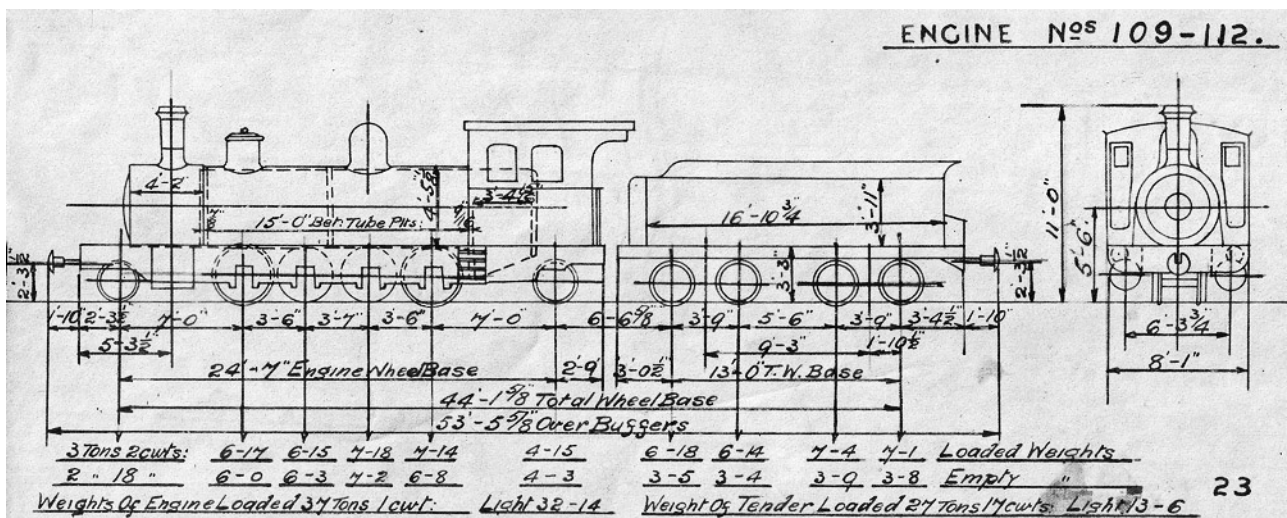 ENGINE Nos 109-112.
4'-2"
3'-4 1/2"
4'-5 5/8"
15'-0" Bet: Tube Plts:
9/16
16'-10 3/4
3'-11"
11'-0"
5'-6"
2'-3 1/2"
3'-3"
2'-3 1/2"
1'-10" 2'-3 1/2" 7'-0" 3'-6" 3'-7" 3'-6" 7'-0" 6'-6 5/8" 3'-9" 5'-6" 3'-9" 3'-4 1/2" 1'-10"
6'-3 3/4"
5'-3 1/2" 9'-3" 1'-10 1/2"
8'-1"
24'-7" Engine Wheel Base 2'-9" 3'-0 1/2" 13'-0" T.W. Base
44'-1 5/8" Total Wheel Base
53'-5 5/8" Over Buggers
3 Tons 2cwts: 6-17 6-15 7-18 7-14 4-15 6-18 6-14 7-4 7-1 Loaded Weights
2 " 18 " 6-0 6-3 7-2 6-8 4-3 3-5 3-4 3-9 3-8 Empty "
Weights Of Engine Loaded 37 Tons 1 cwt: Light 32-14 Weight Of Tender Loaded 27 Tons 17cwts: Light 13-6
23